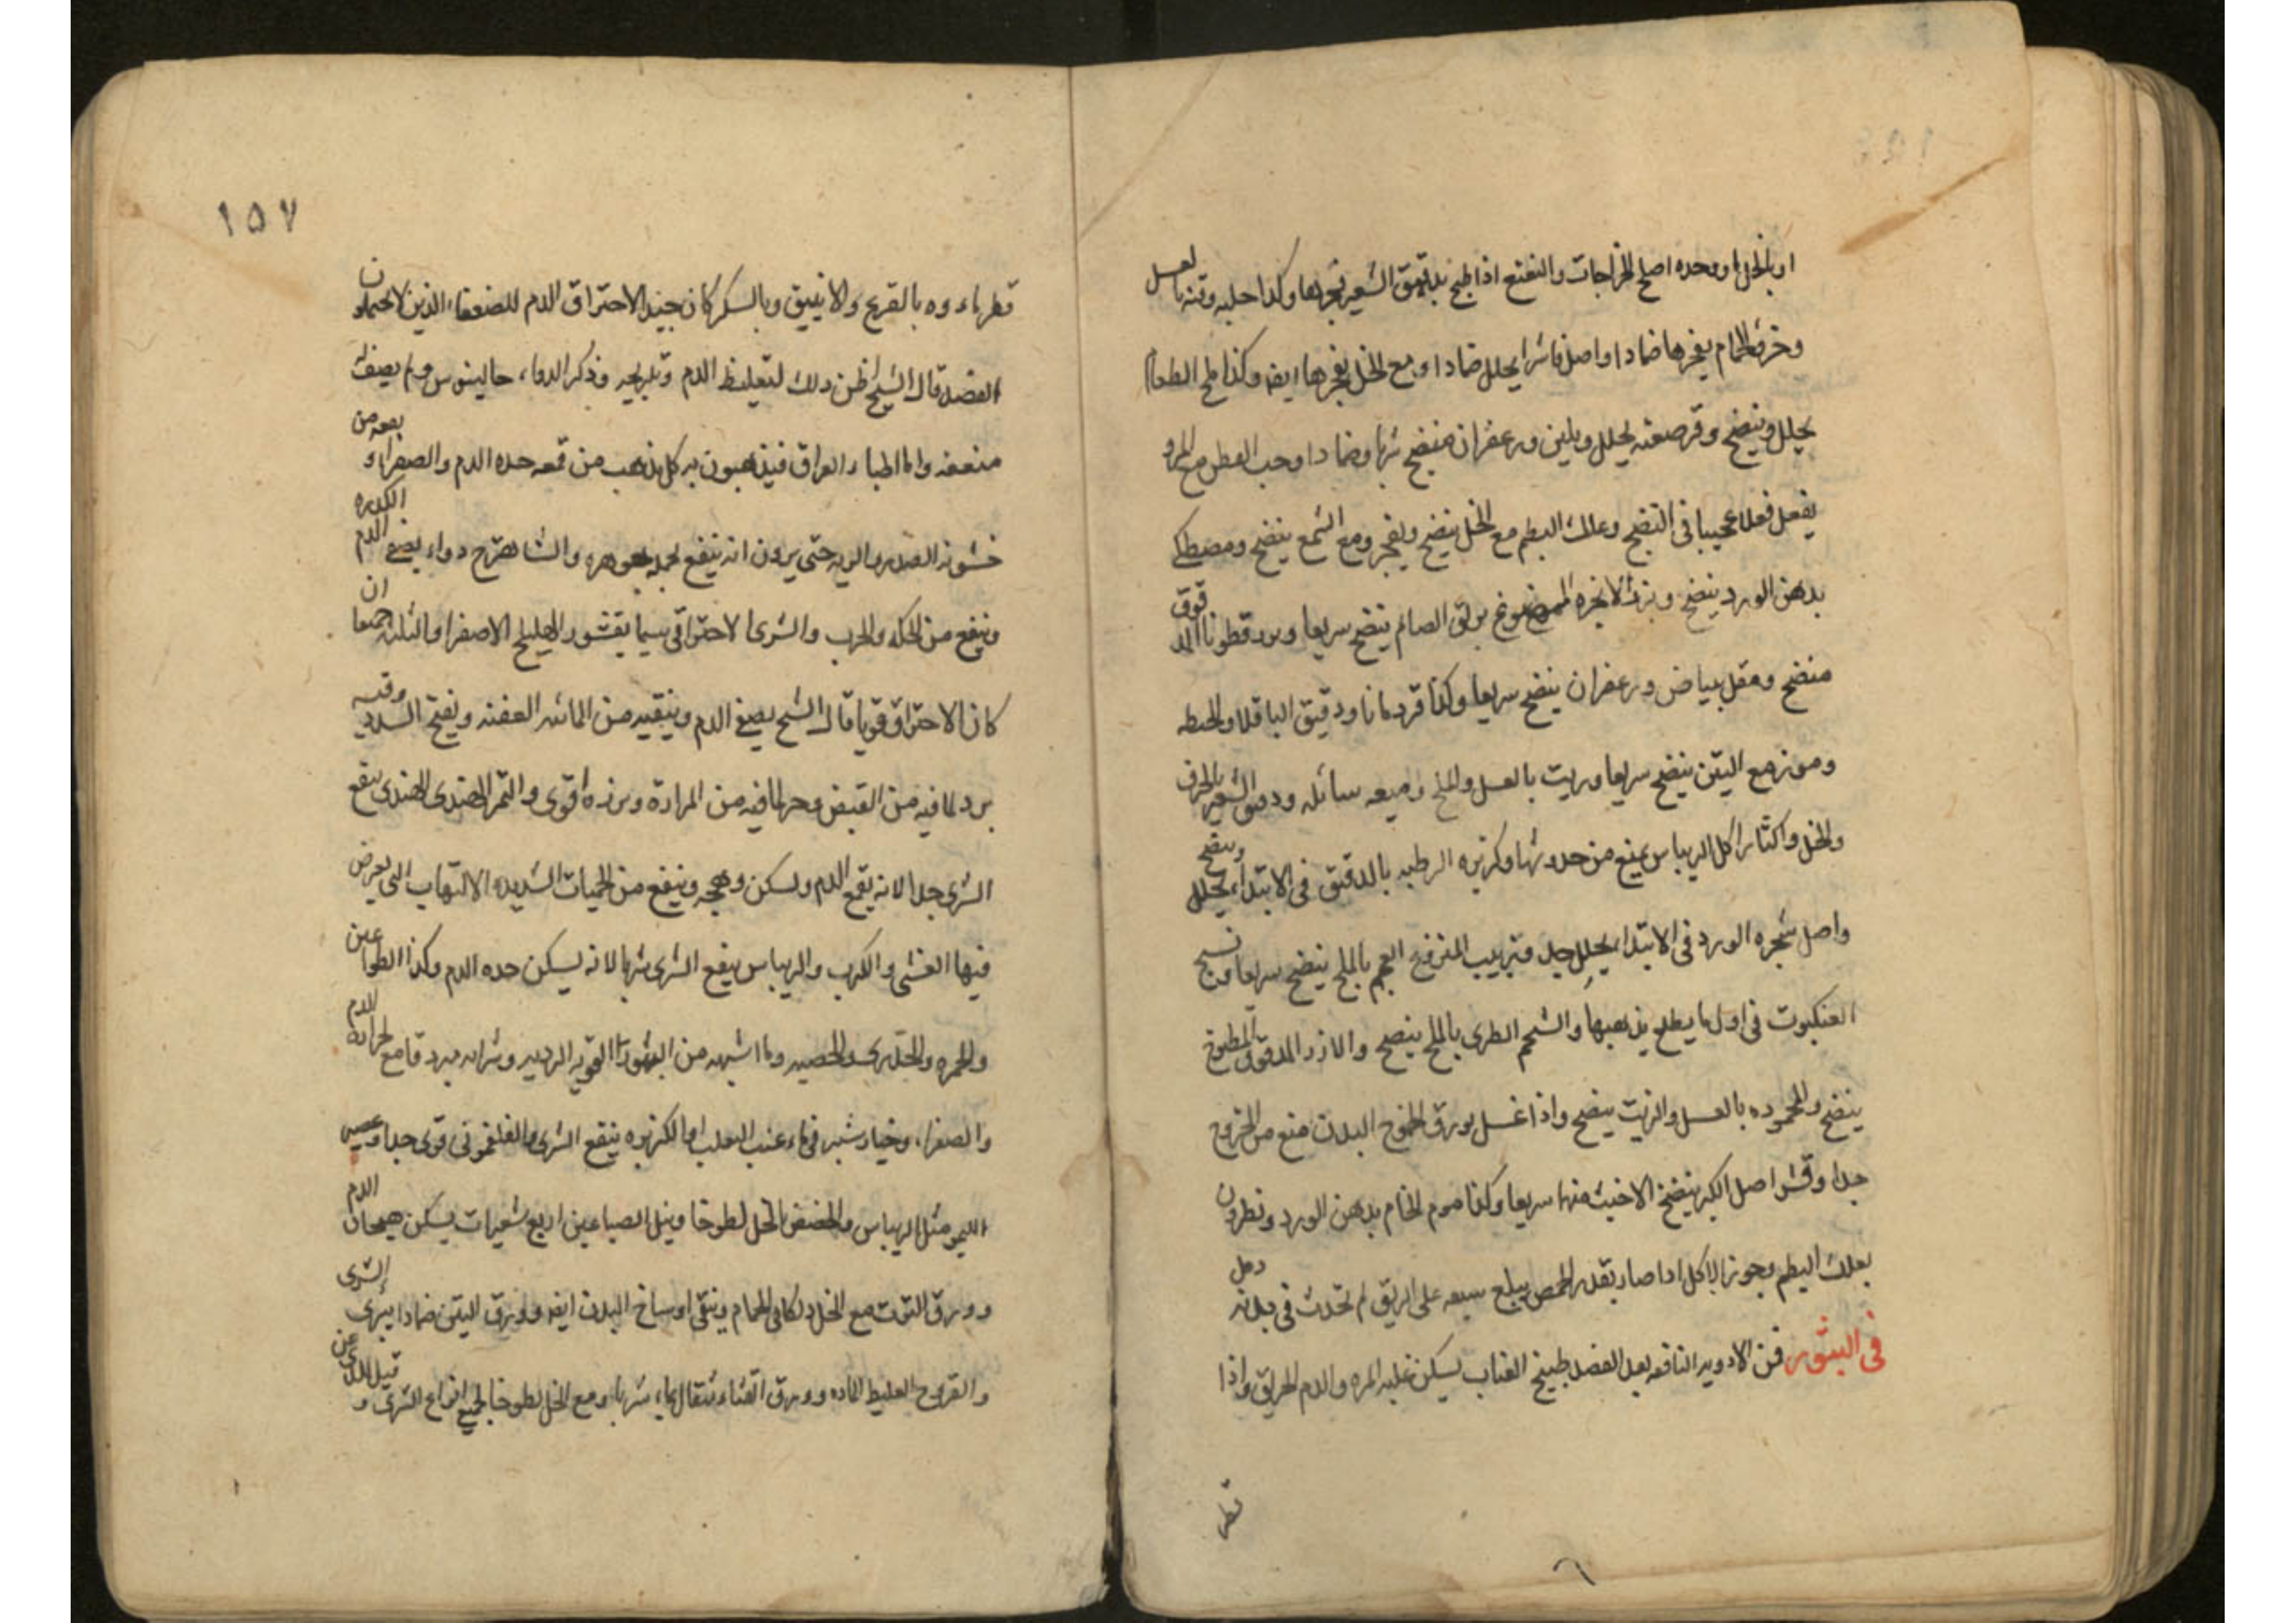 او بالخل او وحده اصلح الخراجات والنعنع اذا طبخ بدقيق الشعير يفجرها وكذا حلبه وتنه بالعسل
وخرؤ الحمام يفجرها ضمادا واصل فاشرا يحلل ضمادا ومع الخل يفجرها ايضه وكذا ملح الطعام
يحلل وينضج وقرصعنه يحلل ويلين وزعفران منضج شربا وضمادا وحب القطن مع المرو
يفعل فعلا عجيبا فى النضج وعلك البطم مع الخل ينضج ويفجر ومع الشمع ينضج ومصطكى
بدهن الورد ينضج وبزر الانجره الممضوغ بريق الصائم ينضج سريعا وبزرقطونا المدقوق
منضج ومقل بياض وزعفران ينضج سريعا وكذا قردمانا ودقيق الباقلا والحنطه
وموزج مع التين ينضج سريعا وزيت بالعسل والملح وميعه سائله ودقيق الشعير بالحرف
والخل واكثار اكل الريباس يمنع من حدوثها وكزبره الرطبه بالدقيق فى الابتداء يحلل وينضج
واصل شجره الورد فى الابتداء يحلل جدا وزبيب المنزوع العجم بالملح ينضج سريعا ونسج
العنكبوت فى اول ما يطلع يذهبها والشحم الطرى بالملح ينضج والارز المدقوق المطبوخ
ينضج والمحموده بالعسل والزيت ينضج واذا غسل بورق الخوخ البدن منع من الخروج
جدا وقشر اصل الكبر ينضج الاخبث منها سريعا وكذا موم الخام بدهن الورد ونطرون
بعلك البطم وجوز الاكل اذا صار بقدر الحمص يبلع سبعه على الريق لم تحدث فى بدنه دمل
فى البثور فمن الادويه النافعه بعد الفصد طبيخ العناب يسكن غلبه المره والدم الحريق واذا
قطر
١٥٧
قطر ماءوه بالقرع والانبيق وبالسكر كان جيد الاحتراق الدم للضعفاء الذين لا يحتملون
الفصد قال الشيخ اظن ذلك لتغليظ الدم وتلزيجه وذكر الدواء جالينوس ولم يصف له
منفعه واما اطباء العراق فيذهبون به كل مذهب من قمعه حده الدم والصفراء ونفعه من
خشونه الصدر والريه حتى يرون انه ينفع بجمله جوهره والشاهترج دواء يصفى الدم الكدره
وينفع من الحكه والجرب والشرى الاحتراقى سيما بقشور الهليلج الاصفر او الثلثه جمعا ان
كان الاحتراق قويا قال الشيخ يصفى الدم وينقيه من المائيه العفنه ويفتح السدد وفيه
برد لما فيه من القبض وحر لما فيه من المراره وبزره اقوى والتمر الهندى الهندى ينفع
الشرى جدا لانه يقمع الدم ويسكن وهجه وينفع من الحميات الشديده الالتهاب التى يعرض
فيها الغشى والكرب والريباس ينفع الشرى شربا لانه يسكن حده الدم وكذا الطواعين
والحمره والجدرى والحصبه وما اشبهه من البثور القويه الرديه وشرابه مبرد قامع لحراره الدم
والصفراء وخيارشنبر فى ماء عنب الثعلب او الكزبره ينفع الشرى والفلغمونى قوى جدا وعصير
الليمو مثل الريباس والحضض بالخل لطوخا ونيل الصباغين اربع شعيرات يسكن هيجان الدم
وورق التوت مع الخل دلكا فى الحمام وينقى اوساخ البدن ايضه وورق التين ضمادا يبرى الشرى
والقروح الغليظ الماده وورق القثاء مثقال بماء شربا ومع الخل لطوخا لجميع انواع الشرى و